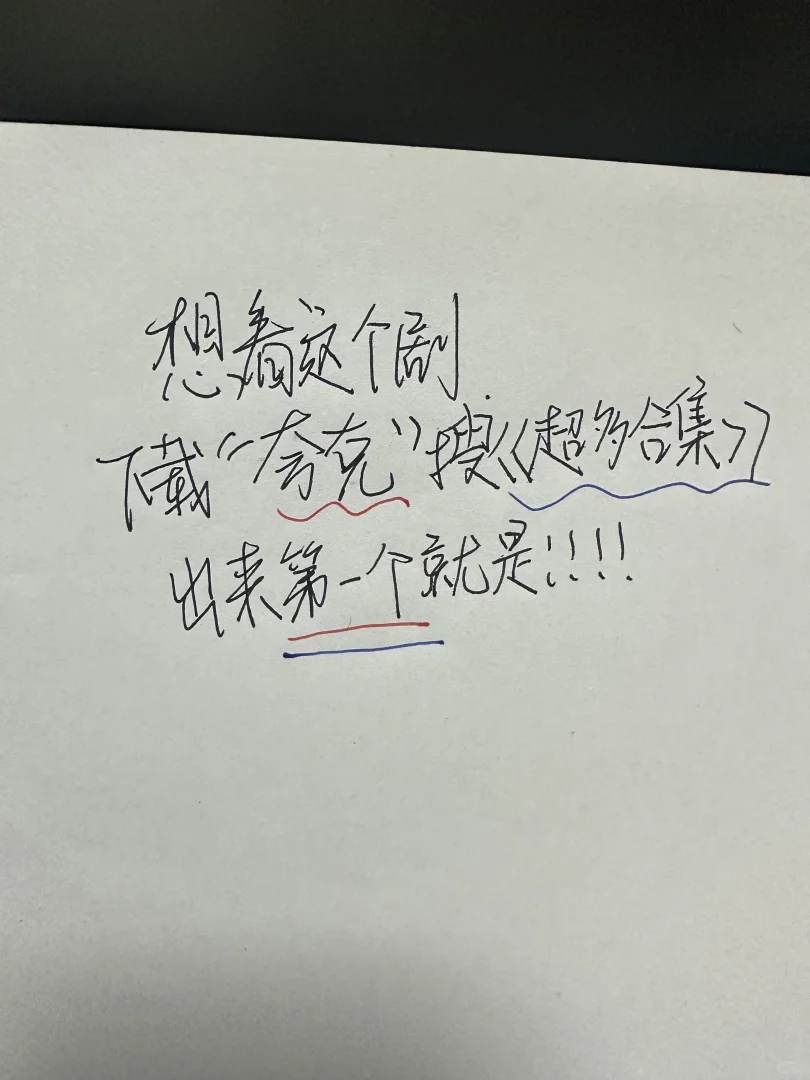 想看这个剧
下载“夸克”搜《超多合集》
出来第一个就是!!!!